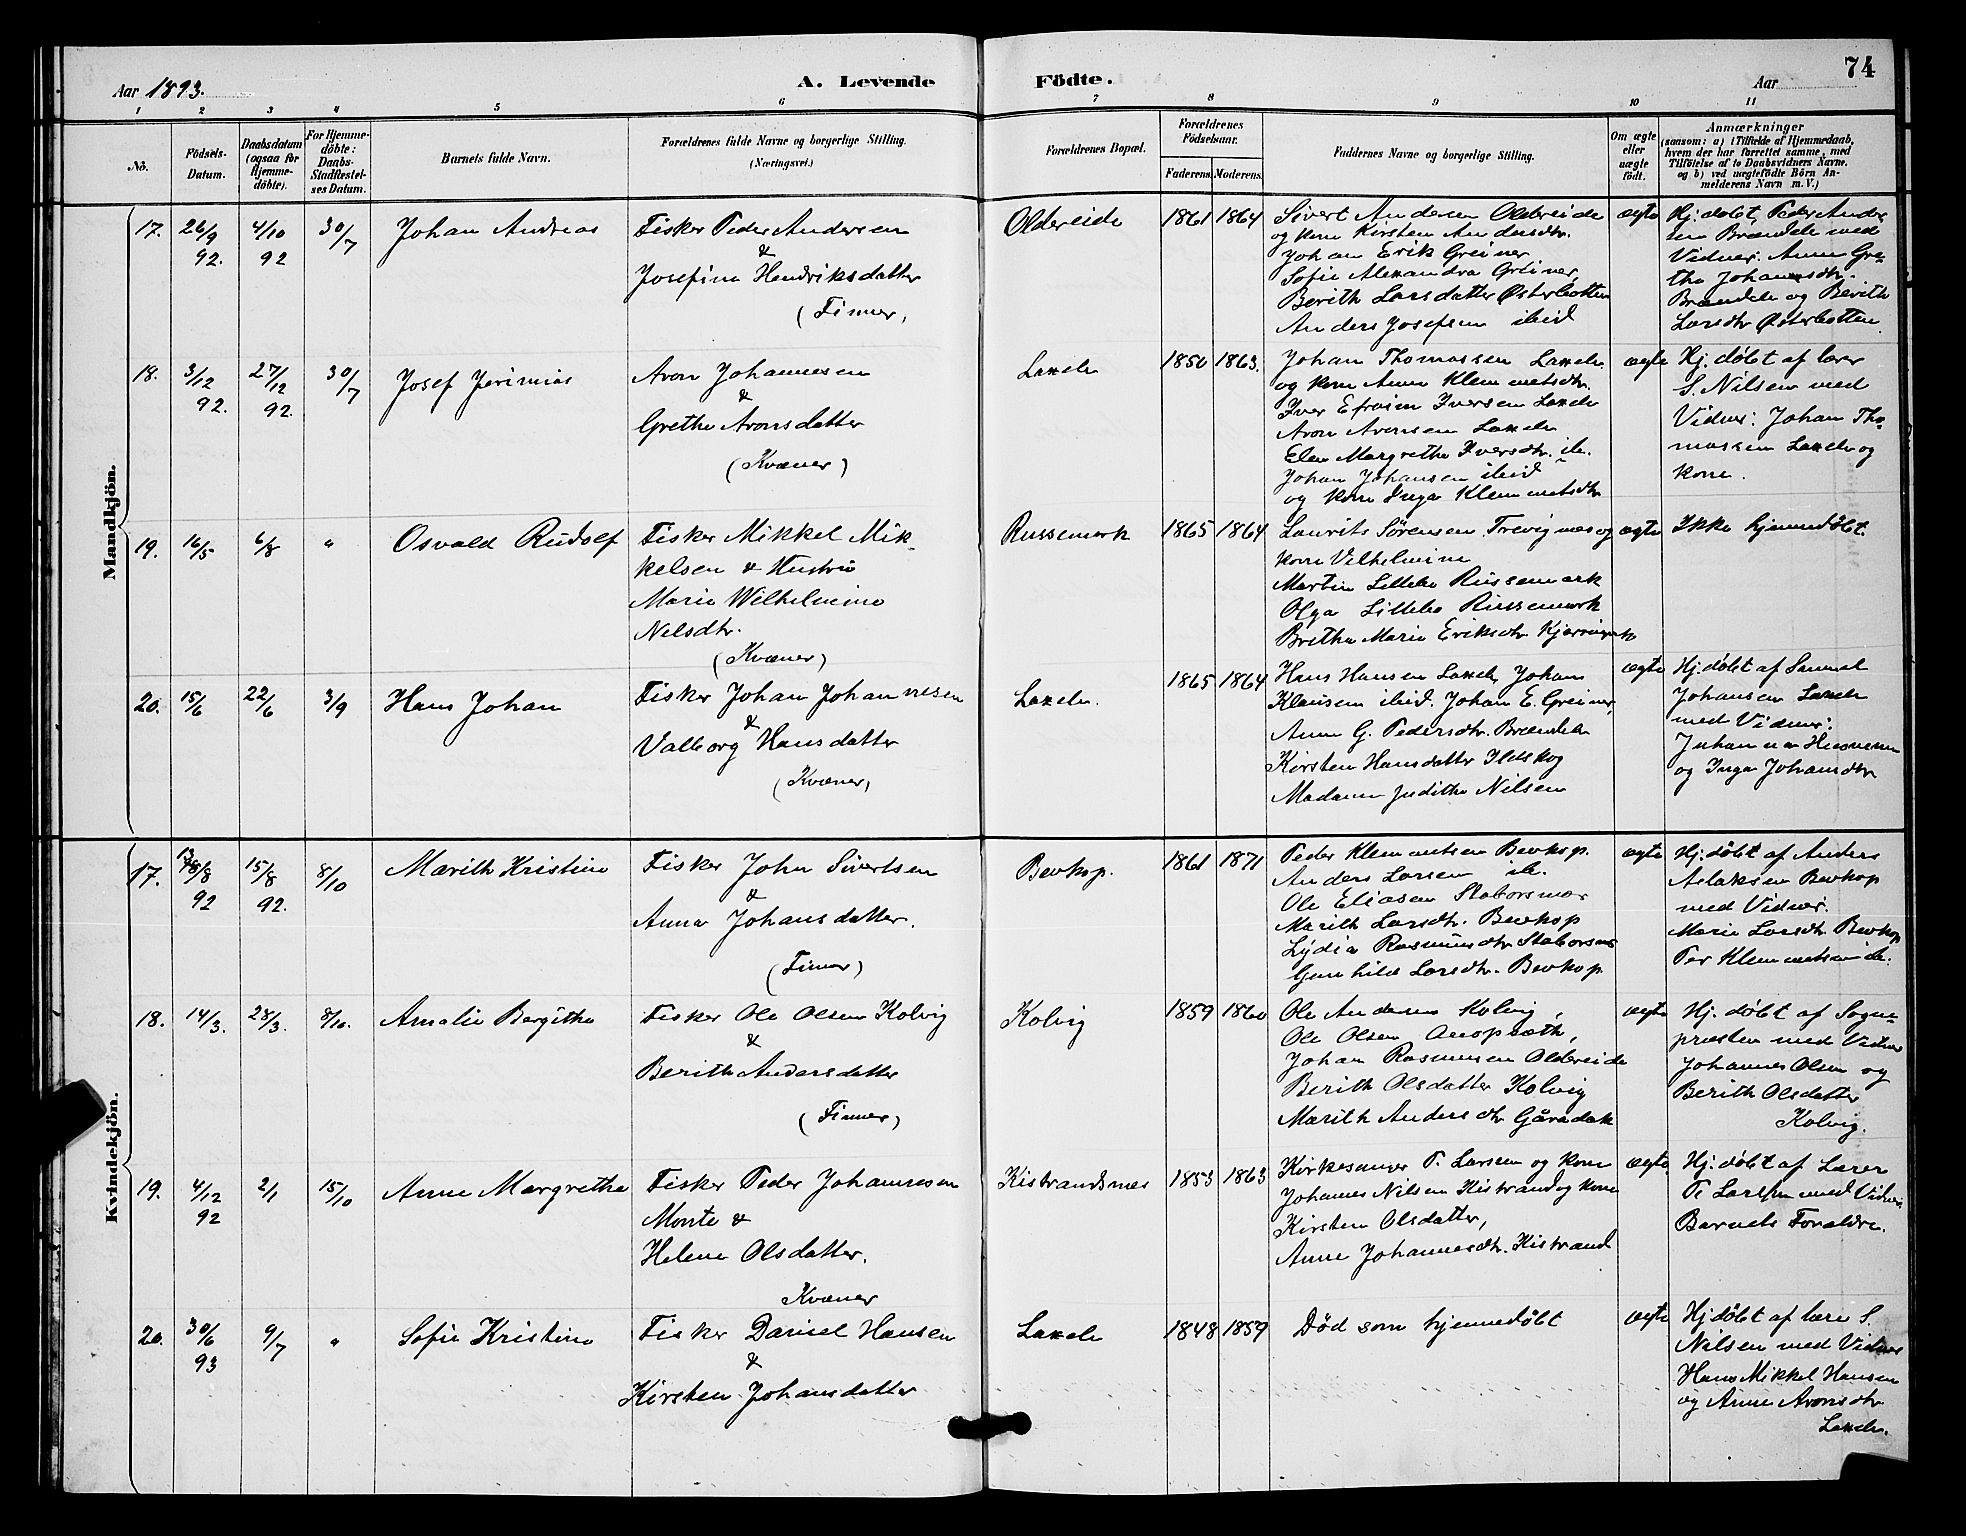 74
Aar 1893.
A. Levende Födte.
Aar
1 2 3 4 5 6 7 8 9 10 11
No.
Födsels-Datum.
Daabsdatum (ogsaa for Hjemme-döbte).
For Hjemme-döbte: Daabs-Stadfæstel-ses Datum.
Barnets fulde Navn.
Forældrenes fulde Navne og borgerlige Stilling.
(Næringsvei.)
Forældrenes Bopæl.
Forældrenes Födselsaar.
Faderens. Moderens.
Faddernes Navne og borgerlige Stilling.
Om ægte eller uægte födt.
Anmærkninger
(saasom: a) i Tilfælde af Hjemmedaab,
hvem der har forrettet samme, med
Tilföielse af to Daabsvidners Navne.
og b) ved uægtefödte Börn An-
melderens Navn m. V.)
Mandkjön.
17. 26/9 92. 4/10 92 30/7
Johan Andreas
Fisker Peder Andersen
&
Josefine Hendriksdatter
(Finner)
Oldereide
1861 1864
Sivert Andersen Oldereide
og kone Kirsten Andersdtr.
Johan Erik Greiner
Sofie Alexandra Greiner
Berith Larsdatter Østerbotten
Anders Josefsen ibid
ægte
Hj. døbt, Peder Ander
sen Brændelv med
Vidner. Anne Gre-
the Johansdtr.
Brændelv og Berith
Larsdtr Østerbotten
18. 3/12 92. 27/12 92. 30/7
Josef Jerimias
Aron Johannesen
&
Grethe Aronsdatter
(Kvæner)
Laxelv
1850 1863.
Johan Thomassen Laxelv
og kone Anne Klemmetsdtr.
Iver Efraim Iversen Laxelv
Aron Aronsen Laxelv
Elen Margrethe Iversdtr. ib.
Johan Johansen ibid
og kone Inga Klemmetsdtr
ægte
Hj. døbt af lærer
S. Nilsen med
Vidner: Johan Tho-
massen Laxelv og
kone.
19. 16/5 6/8 "
Osvald Rudolf
Fisker Mikkel Mik-
kelsen & Hustru
Marie Wilhelmine
Nilsdtr.
(Kvæner)
Russemark
1865 1864
Laurits Sørensen Trevignes og
kone Vilhelmine
Martin Lillebo Russemark
Olga Lillebo Russemark
Brethe Marie Eriksdtr
ægte
Ikke hjemmedøbt.
20. 15/6 22/6 3/9
Hans Johan
Fisker Johan Johannesen
&
Valborg Hansdatter
(Kvæner)
Laxelv.
1865 1864
Hans Hansen Laxelv, Johan
Klausen ibid. Johan E. Greiner,
Anne G. Pedersdtr. Brændelv
Kirsten Hansdatter Ildskog
Madame Judithe Nilsen
ægte
Hj. døbt af Samuel
Johansen Laxelv
med Vidner:
og Inga Johansdtr
Kvindekjön.
17. 13/8 92 15/8 92. 8/10
Marith Kristine
Fisker John Sivertsen
&
Anna Johansdatter.
(Finner)
Bevkop.
1861 1871
Peder Klemmetsen Bevkop.
Anders Larsen ib.
Ole Eliasen Staborsnæs
Marith Larsdtr. Bevkop
Lydia Rasmusdtr Staborsnæs
Gunhild Larsdtr. Bevkop
ægte
Hj. døbt af Anders
Aslaksen Bevkop
med Vidner.
Marie Larsdtr Bevkop
Per Klemmetsen ib.
18. 14/3. 28/3. 8/10.
Amalie Bergithe
Fisker Ole Olsen Kolvig
&
Berith Andersdatter
(Finner)
Kolvig
1859 1860
Ole Andersen Kolvig,
Ole Olsen
Johan Rasmussen Oldereide
Berith Olsdatter Kolvig
Marith Andersdtr Gåradak
ægte
Hj. døbt af Sogne-
præsten med Vidner
Johannes Olsen og
Berith Olsdatter
Kolvig.
19. 4/12 92 2/1 15/10
Anne Margrethe
Fisker Peder Johannesen
Monte &
Helene Olsdatter.
Kvæner
Kistrandsnæs
1853 1863
Kirkesanger P. Larsen og kone
Johannes Nilsen Kistrand og kone
Kirsten Olsdatter,
Anne Johannesdtr. Kistrand
ægte
Hj. døbt af Lærer
P. Larsen med Vidner
Barnets Forældre.
20. 30/6 93 9/7 "
Sofie Kristine
Fisker Daniel Hansen
&
Kirsten Johansdatter
Laxelv
1848 1859
Død som hjemmedøbt
ægte
Hj. døbt af lærer S.
Nilsen med Vidner
Hans Mikkel Hansen
og Anne Aronsdtr
Laxelv.